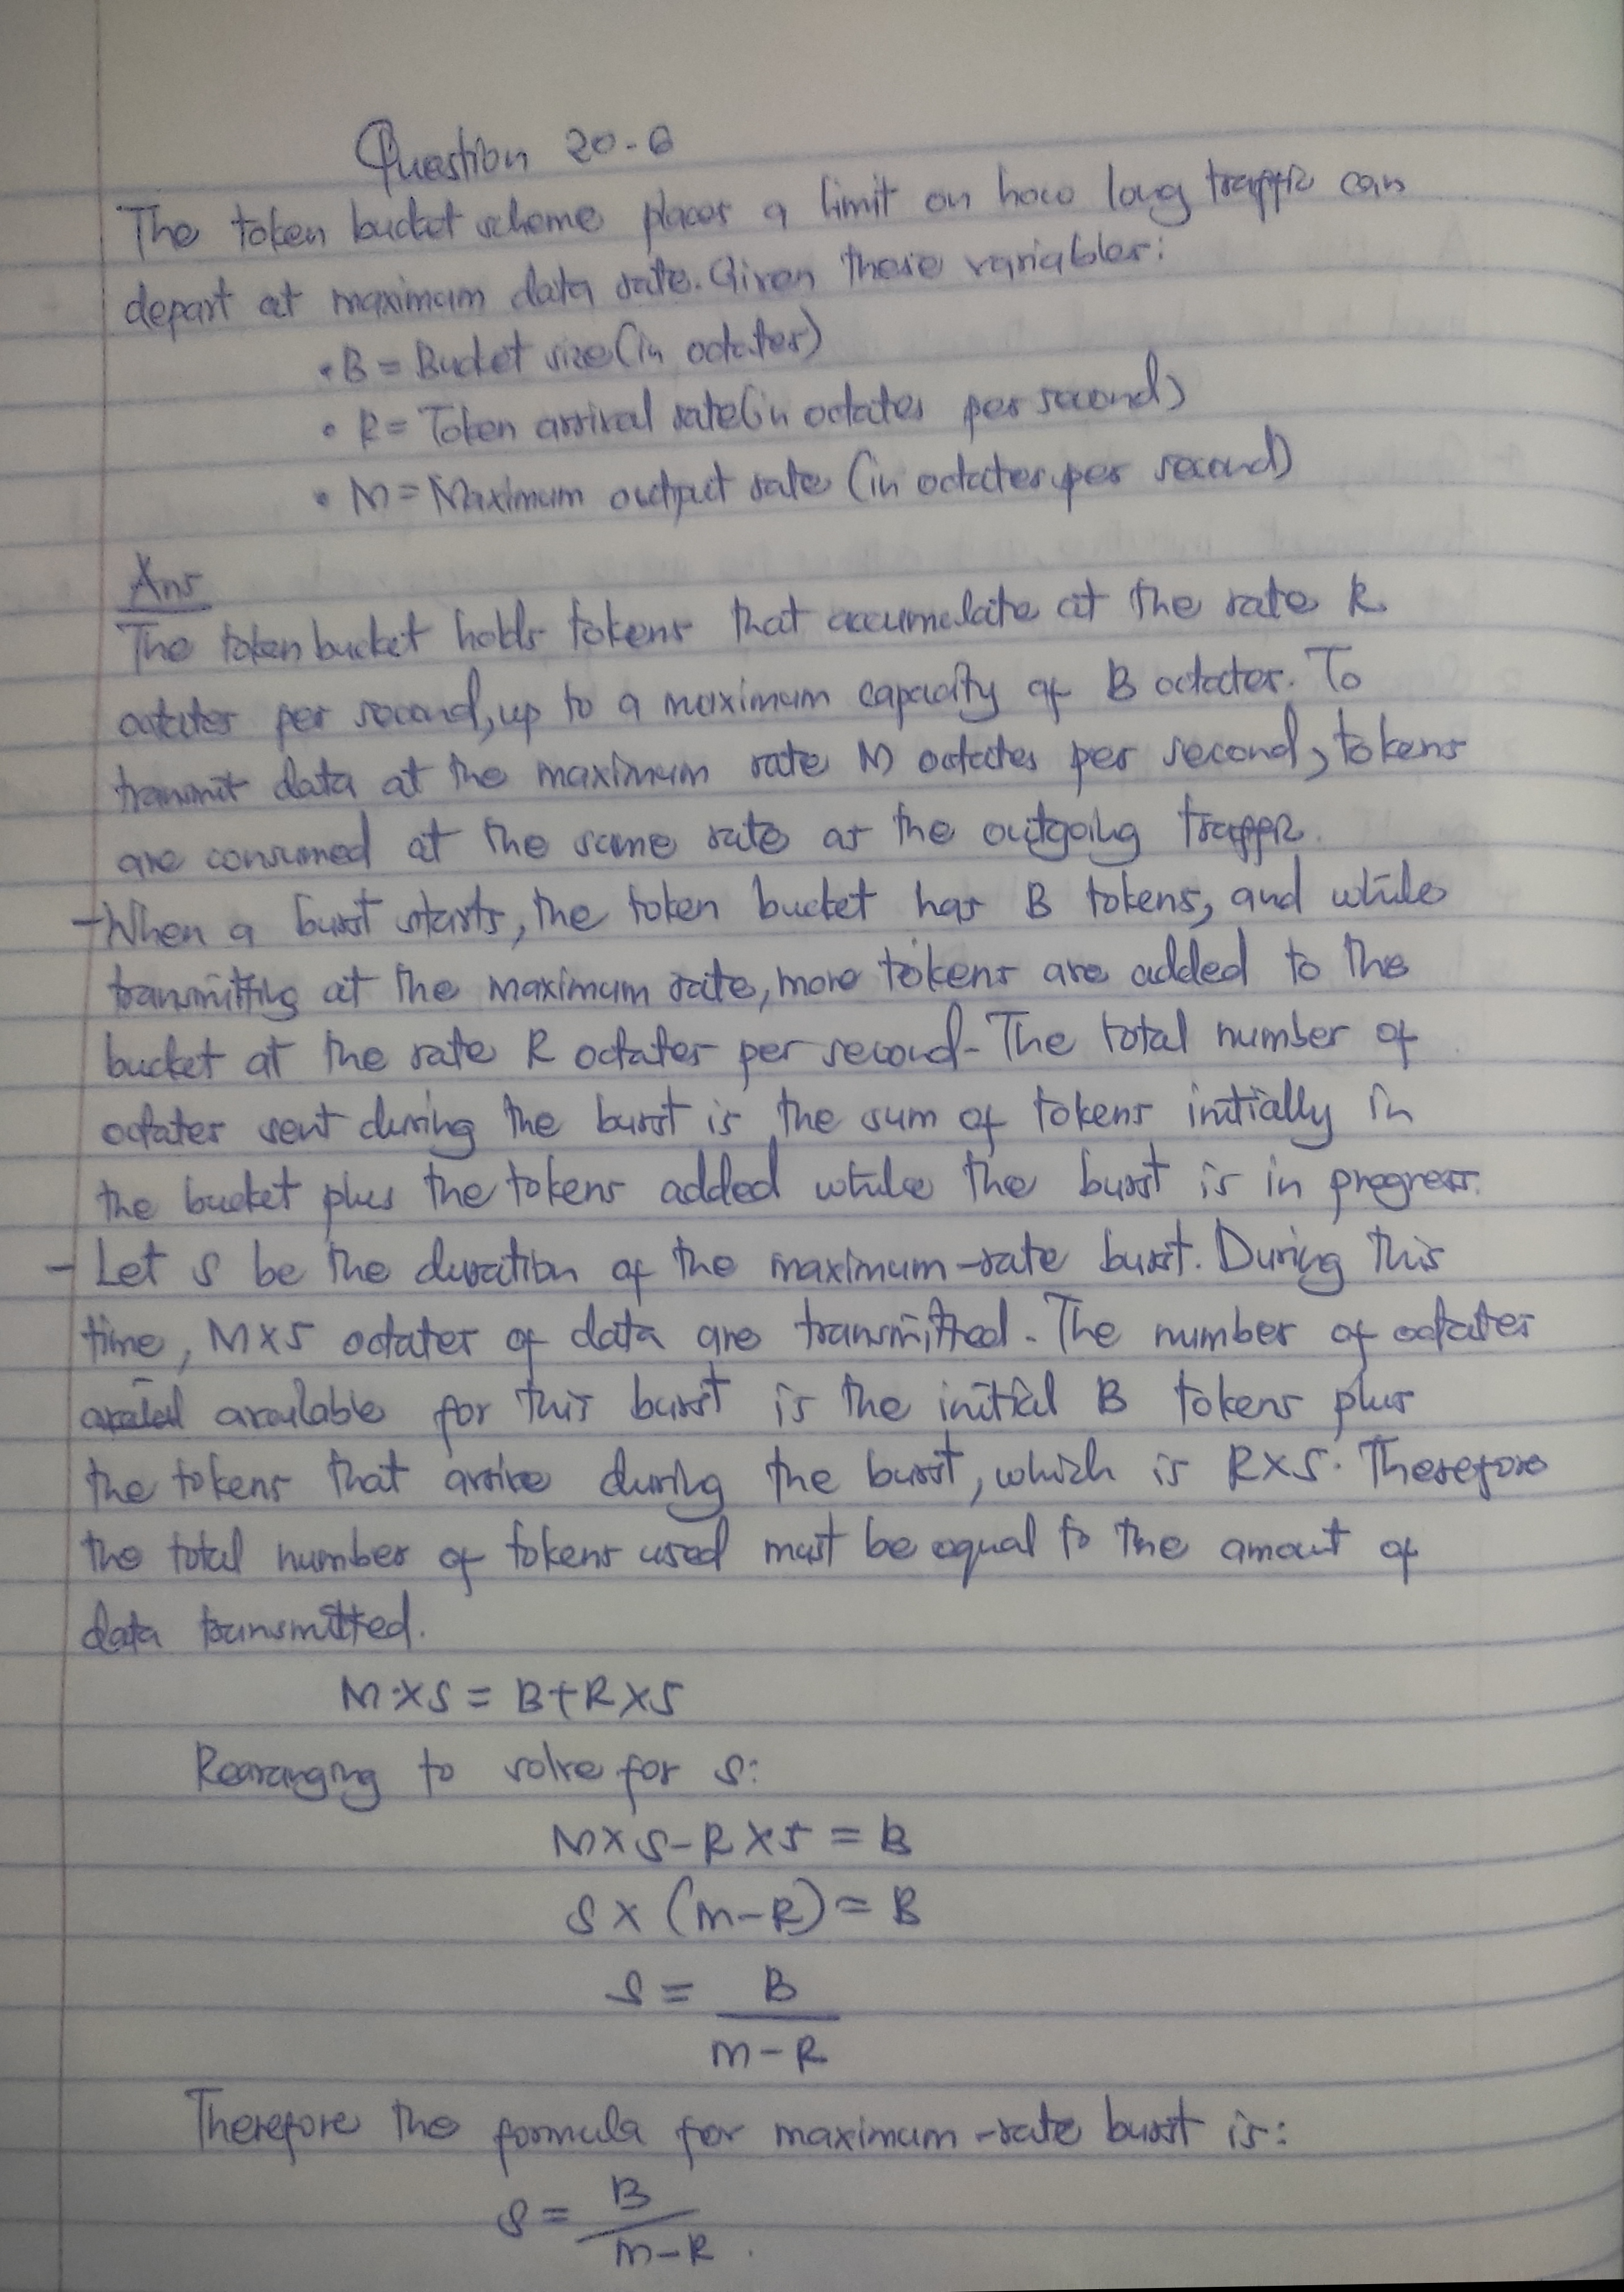 Question 20-6
The token bucket scheme places a limit on how long traffic can
depart at maximum data rate. Given these variables:
• B = Bucket size (in octates)
• R = Token arrival rate (in octates per second)
• M = Maximum output rate (in octates per second)
Ans
The token bucket holds tokens that accumulate at the rate R
octates per second, up to a maximum capacity of B octates. To
transmit data at the maximum rate M octates per second, tokens
are consumed at the same rate as the outgoing traffic.
- When a burst starts, the token bucket has B tokens, and while
transmitting at the maximum rate, more tokens are added to the
bucket at the rate R octates per second. The total number of
octates sent during the burst is the sum of tokens initially in
the bucket plus the tokens added while the burst is in progress.
- Let S be the duration of the maximum-rate burst. During this
time, M×S octates of data are transmitted. The number of octates
available for this burst is the initial B tokens plus
the tokens that arrive during the burst, which is R×S. Therefore
the total number of tokens used must be equal to the amout of
data transmitted.
M×S = B+R×S
Rearanging to solve for S:
M×S-R×S = B
S×(M-R) = B
S = B
M-R
Therefore the formula for maximum-rate burst is:
S = B
M-R.